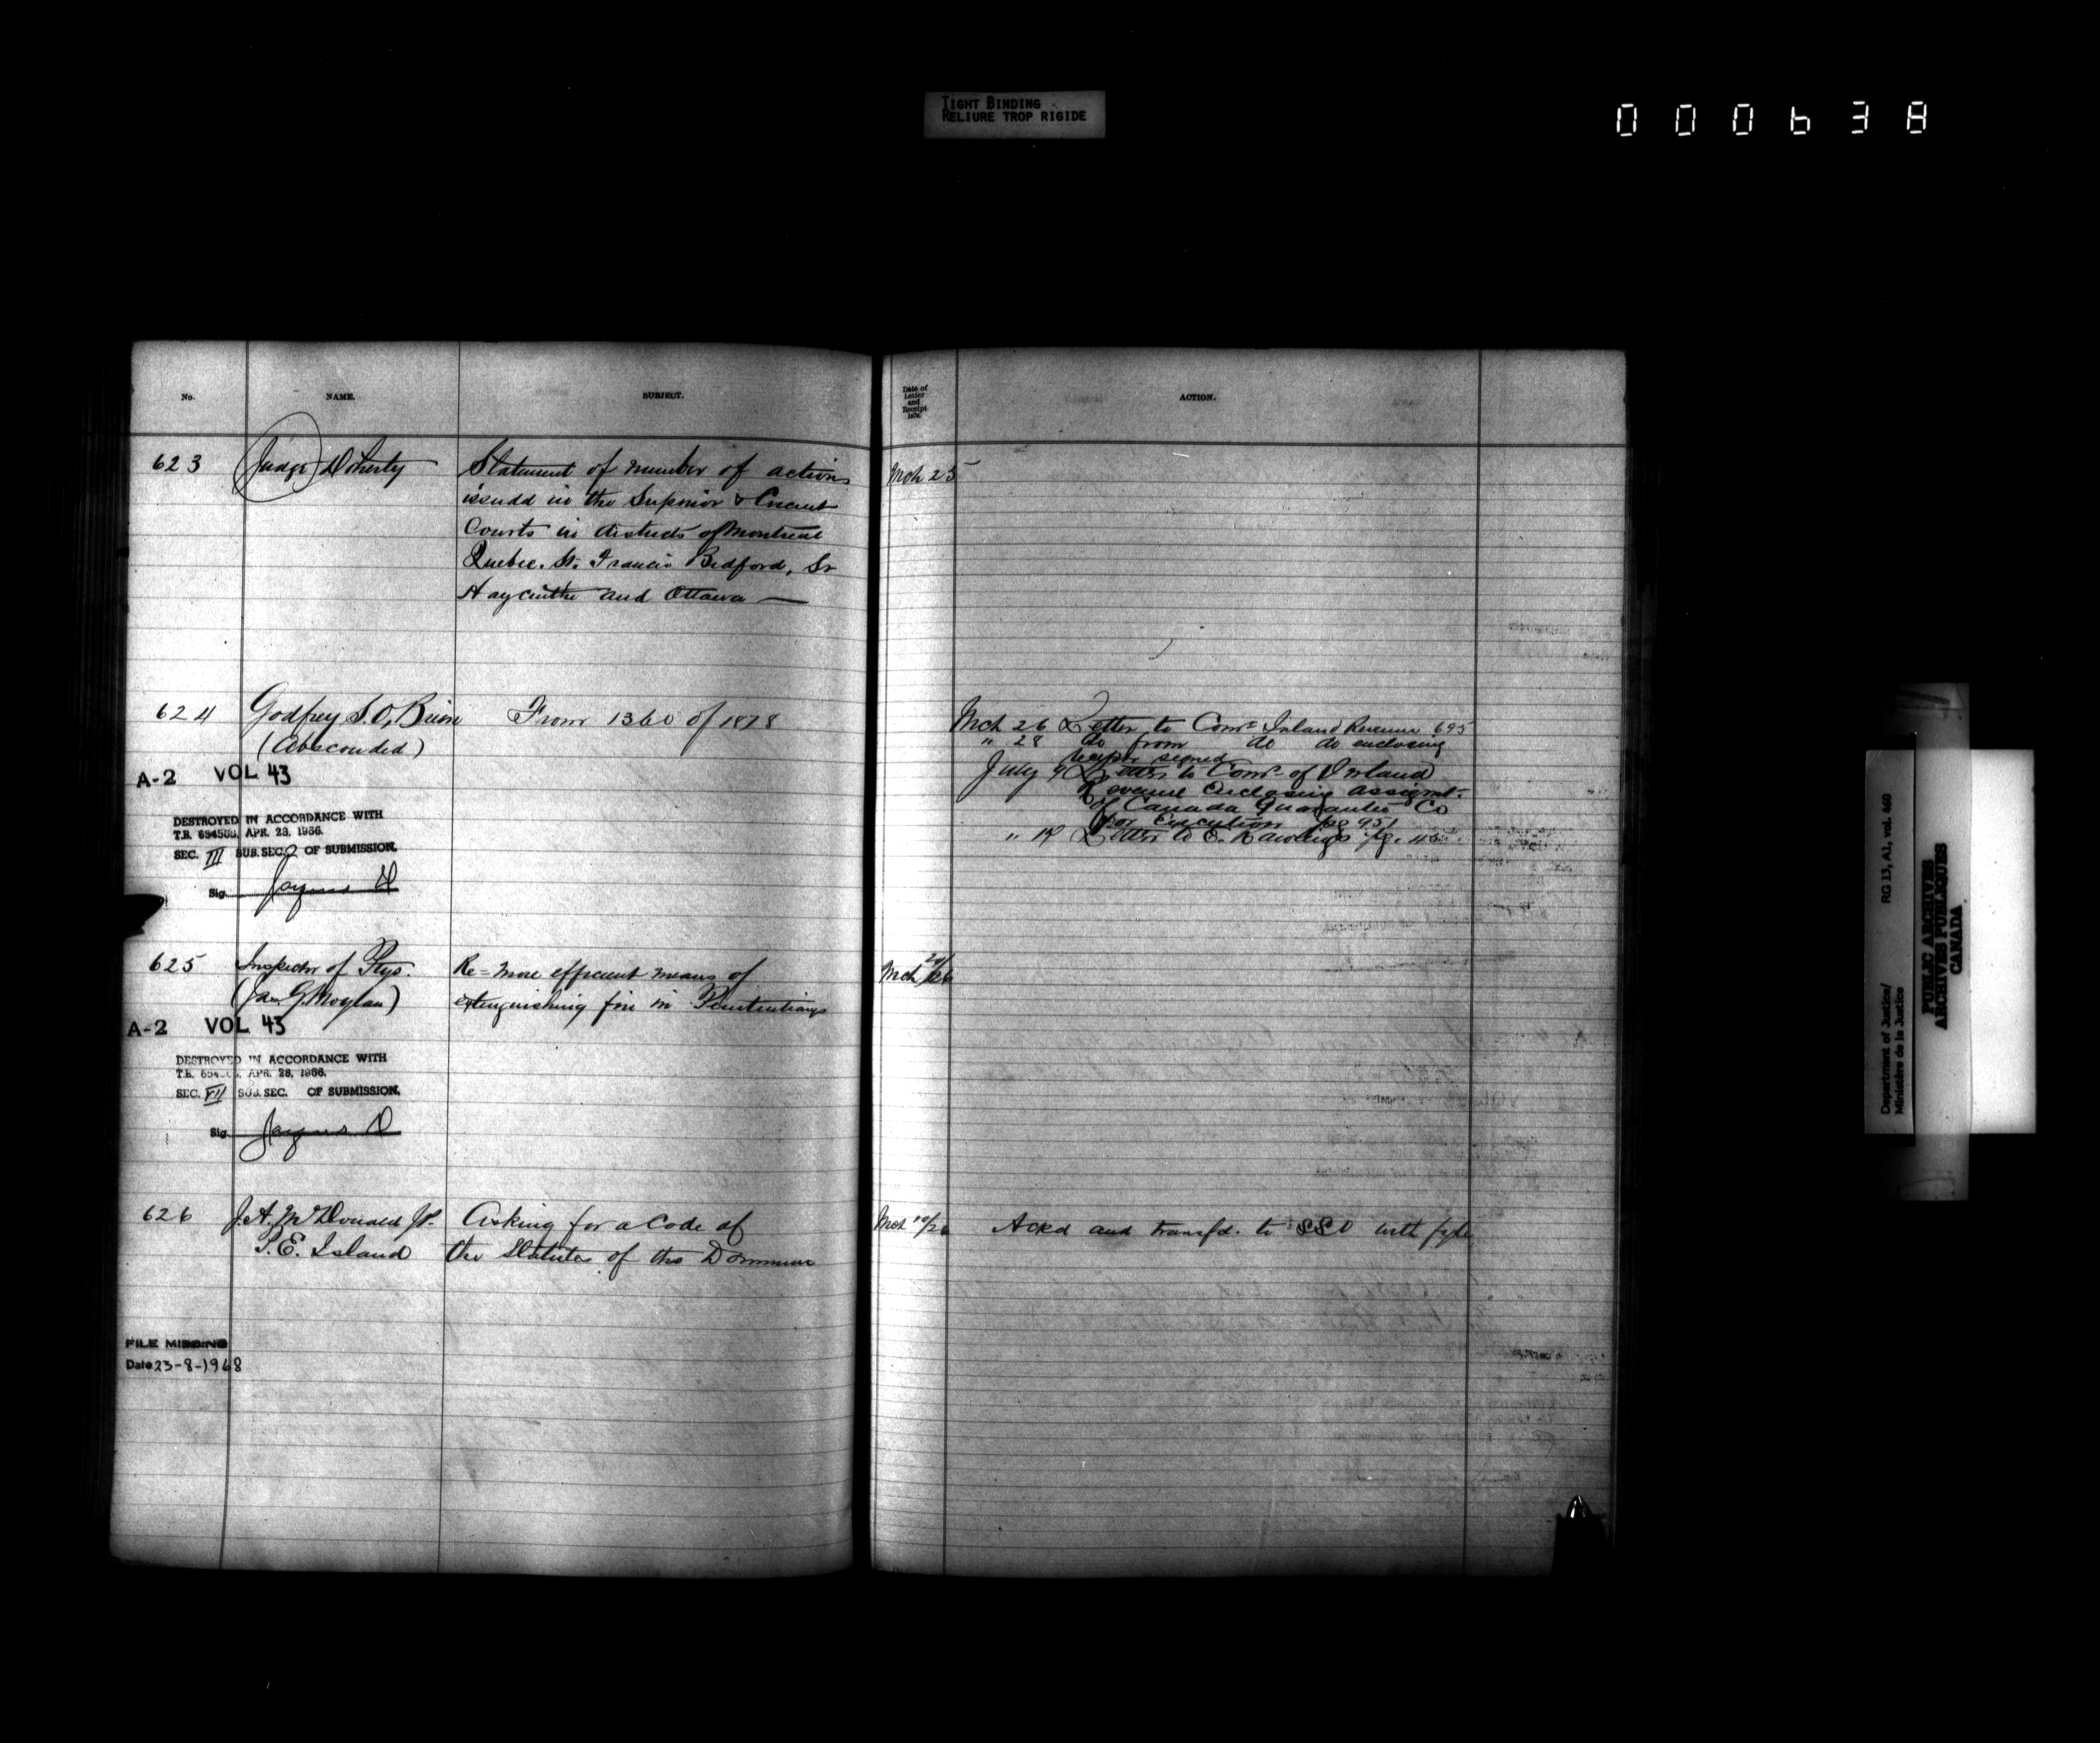 TIGHT BINDING
RELIURE TROP RIGIDE
000638
No.
NAME.
SUBJECT.
Date of
Letter
and
Receipt
ACTION.
623 Judge Doherty Statement of number of actions Mch 25
issued in the Superior & Circuit
Courts in districts of Montreal
Quebec. St. Francis Bedford, St
Haycinthe and Ottawa —
624 Godfrey S. O'Brien From 1360 of 1878
(Absconded)
Mch 26 Letter to Comr Inland Revenue 695
" 28 do from do do enclosing
signed
July 9 Letter to Comr of Inland
Revenue Enclosing assignt.
of Canada Guarantee Co
for Execution pg 951
Letter to E. Rawlings pg.
A-2 VOL 43
DESTROYED IN ACCORDANCE WITH
T.B. APR. 28, 1966.
SEC. III SUB.SEC. 2 OF SUBMISSION.
Sig.
625 Inspector of Ptys. Re= more efficient means of Mch
(Jas. G. Moylan) extinguishing fire in Penitentiarys
A-2 VOL 43
DESTROYED IN ACCORDANCE WITH
T.B. APR. 28, 1966.
SEC. VII SUB.SEC. OF SUBMISSION.
Sig.
626 J.A. McDonald JP. Asking for a Code of Mch Ackd and transfd. to SSO with fyle
P.E. Island the Statutes of the Dominion
FILE MISSING
Date 23-8-1968
Department of Justice/ RG 13, A1, vol. 460
Ministère de la Justice
PUBLIC ARCHIVES
ARCHIVES PUBLIQUES
CANADA